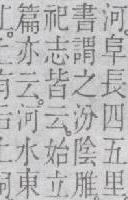 河阜長四五里
書謂之汾陰脽
祀志皆云。始立
篇亦云。河水東